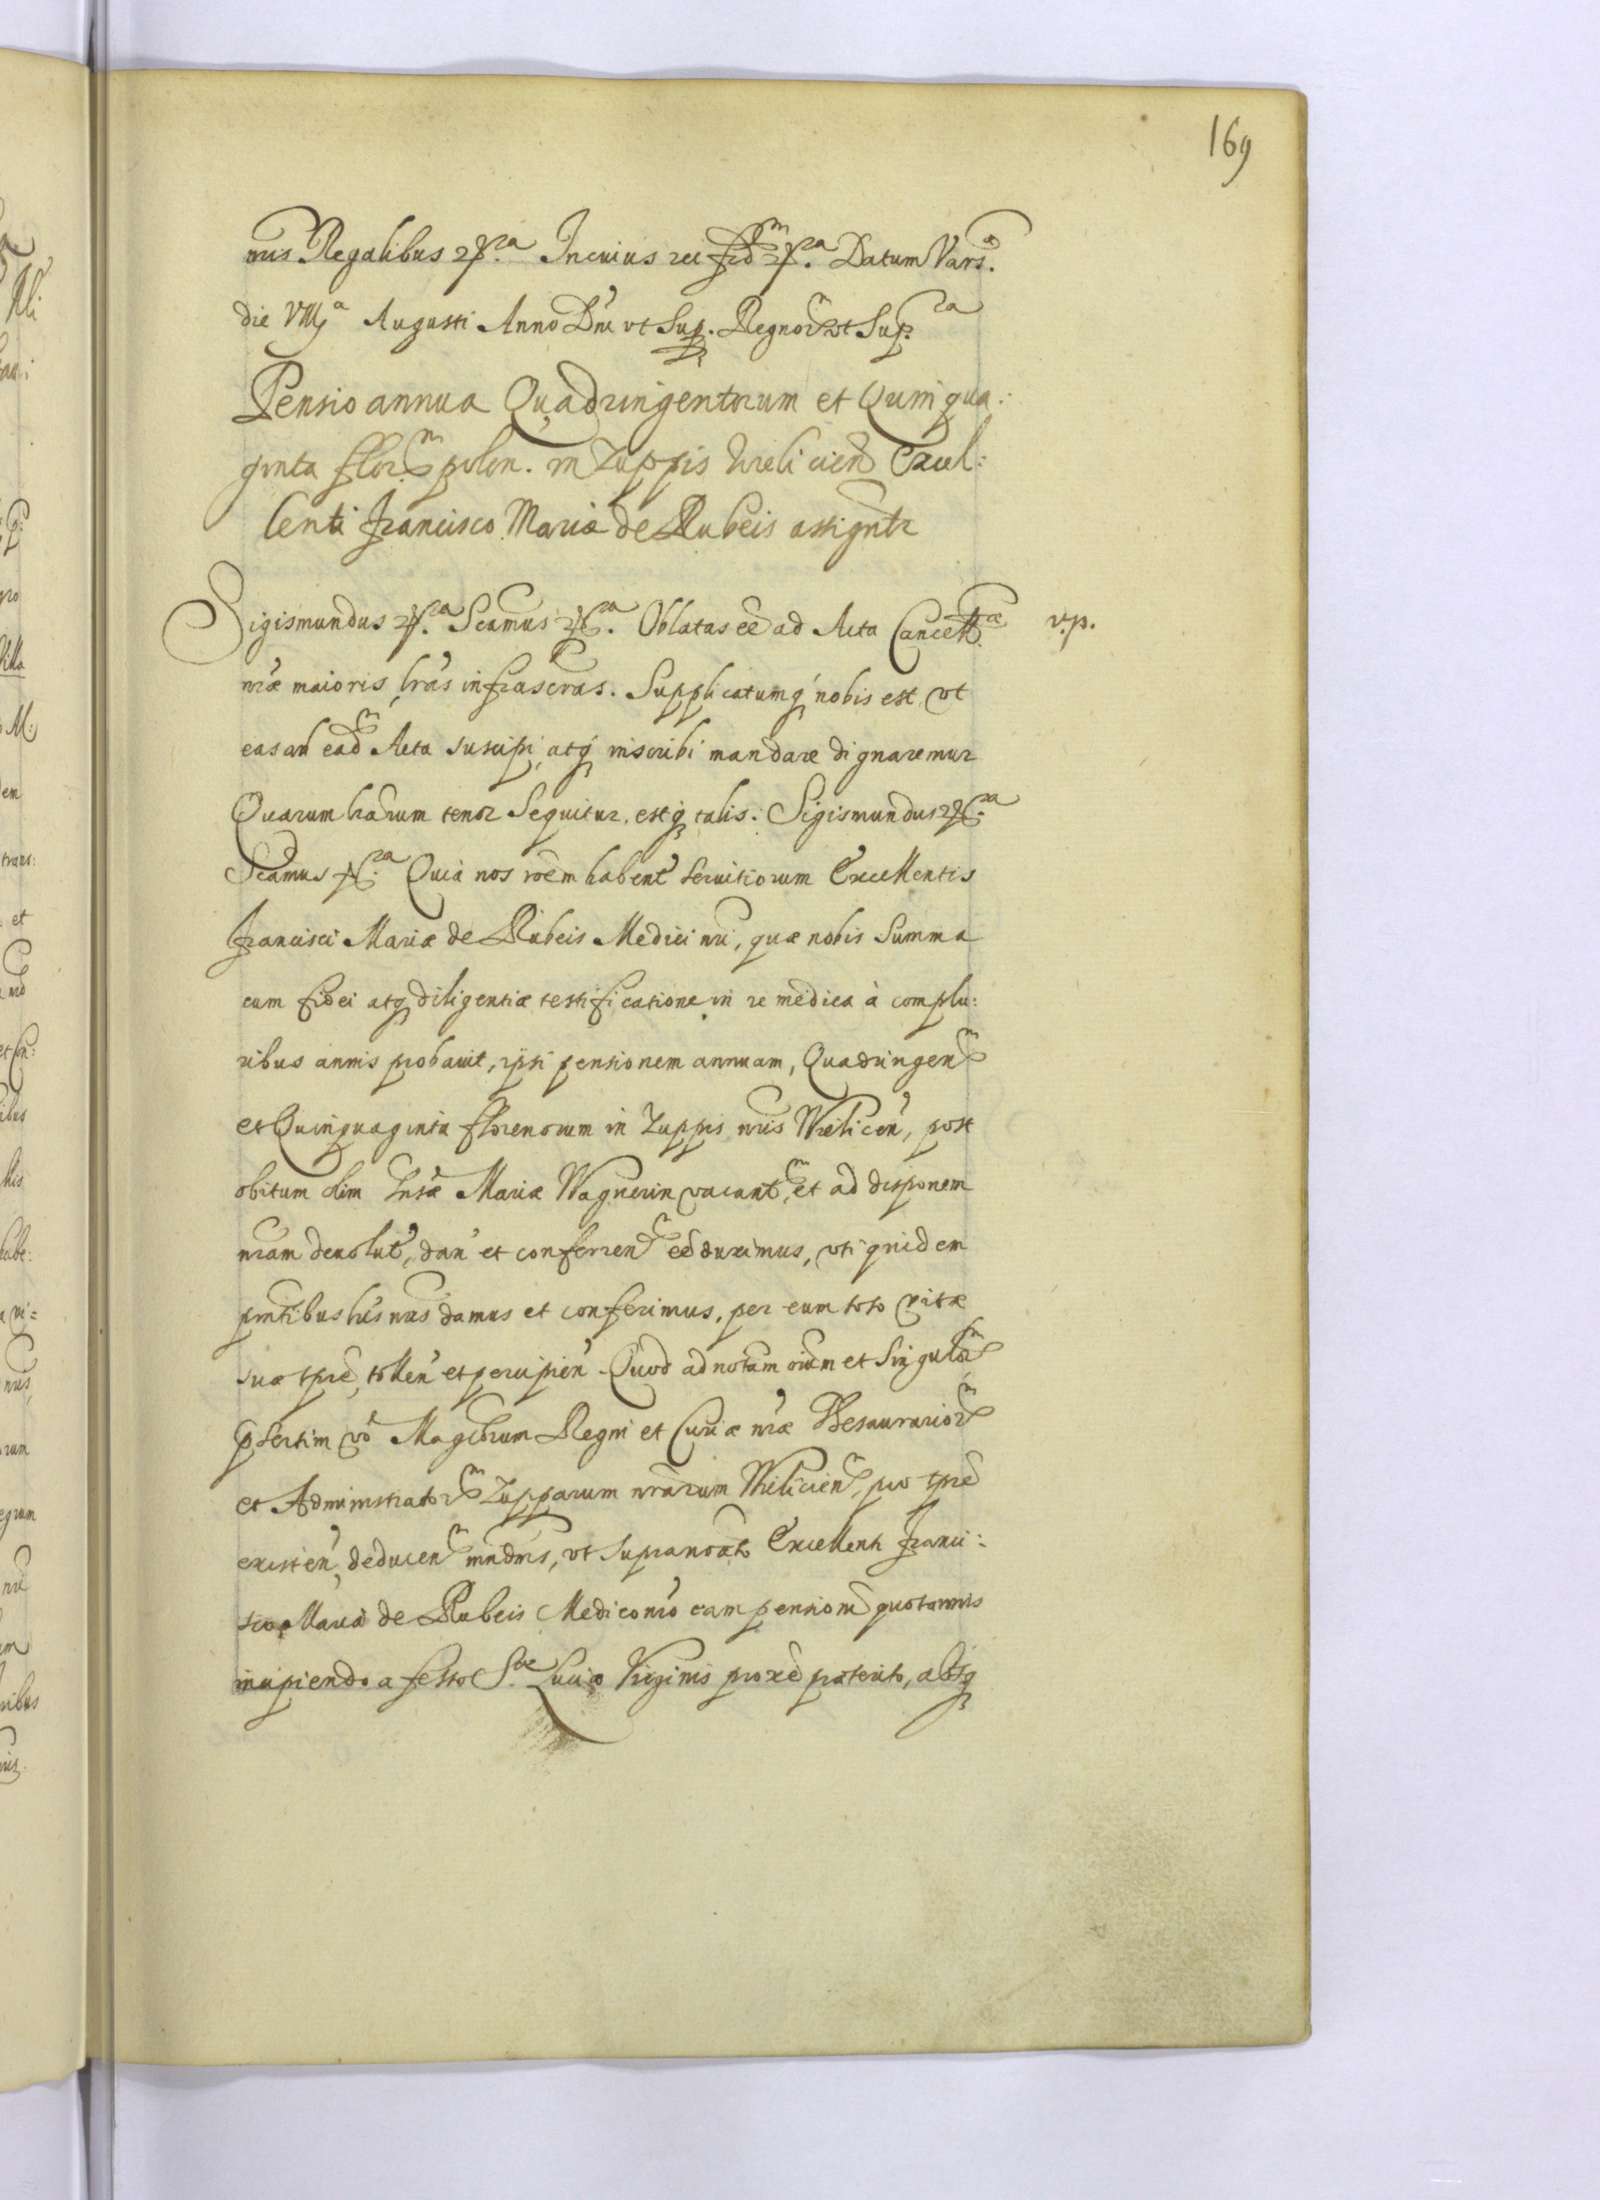 169
nris Regalibus etc.ra In cuius rei fidm etc.ra Datum Vars.
die VIIIa Augusti Anno Dni vt Sup. Regnorum vt Supra
Pensio annua Quadringentorum et Quinqua:
ginta florm polon. in Zuppis Vieliciens Excel:
lenti Francisco Mariæ de Rubeis assigntr
Sigismundus etc.ra Scamus etc.ra Oblatas eē ad Acta Cancellæ v.p.
nræ maioris, lras infrascras. Supplicatumq nobis est vt
eas ad eadm Acta suscipi, atq inscribi mandare dignaremur
Quarum lrarum tenor sequitur, estq talis: Sigismundus etc.ra
Scamus etc.ra Quia nos roēm habent seruitiorum Excellentis
Francisci Mariæ de Rubeis Medici nri, quæ nobis summa
cum fidei atq diligentiæ testificatione in re medica à complu:
ribus annis probauit, ipsi pensionem annuam, Quadringenm
et Quinquaginta florenorum in Zuppis nris Vielicen, post
obitum olim Mariæ Wagnerin vacantm, et ad disponem
nram deuolut, dan et conferenm eē duximus, vti quidem
pntibus lris nris damus et conferimus, per eum toto vitæ
suæ tpre, tollen et percipien. Quod ad notam oium et singulorm
pſertim vō Magcorum Regni et Curiæ nræ Thesaurariorm
et Administratorm Zupparum nrarum Vielicienm, pro tpre
existen, deducenm mndms, vt supranoato Excellenti Franci:
sco Mariæ de Rubeis Medico nro eam pensionē quotannis
incipiendo a festo S.tæ Luciæ Virginis proxē præterito, absq